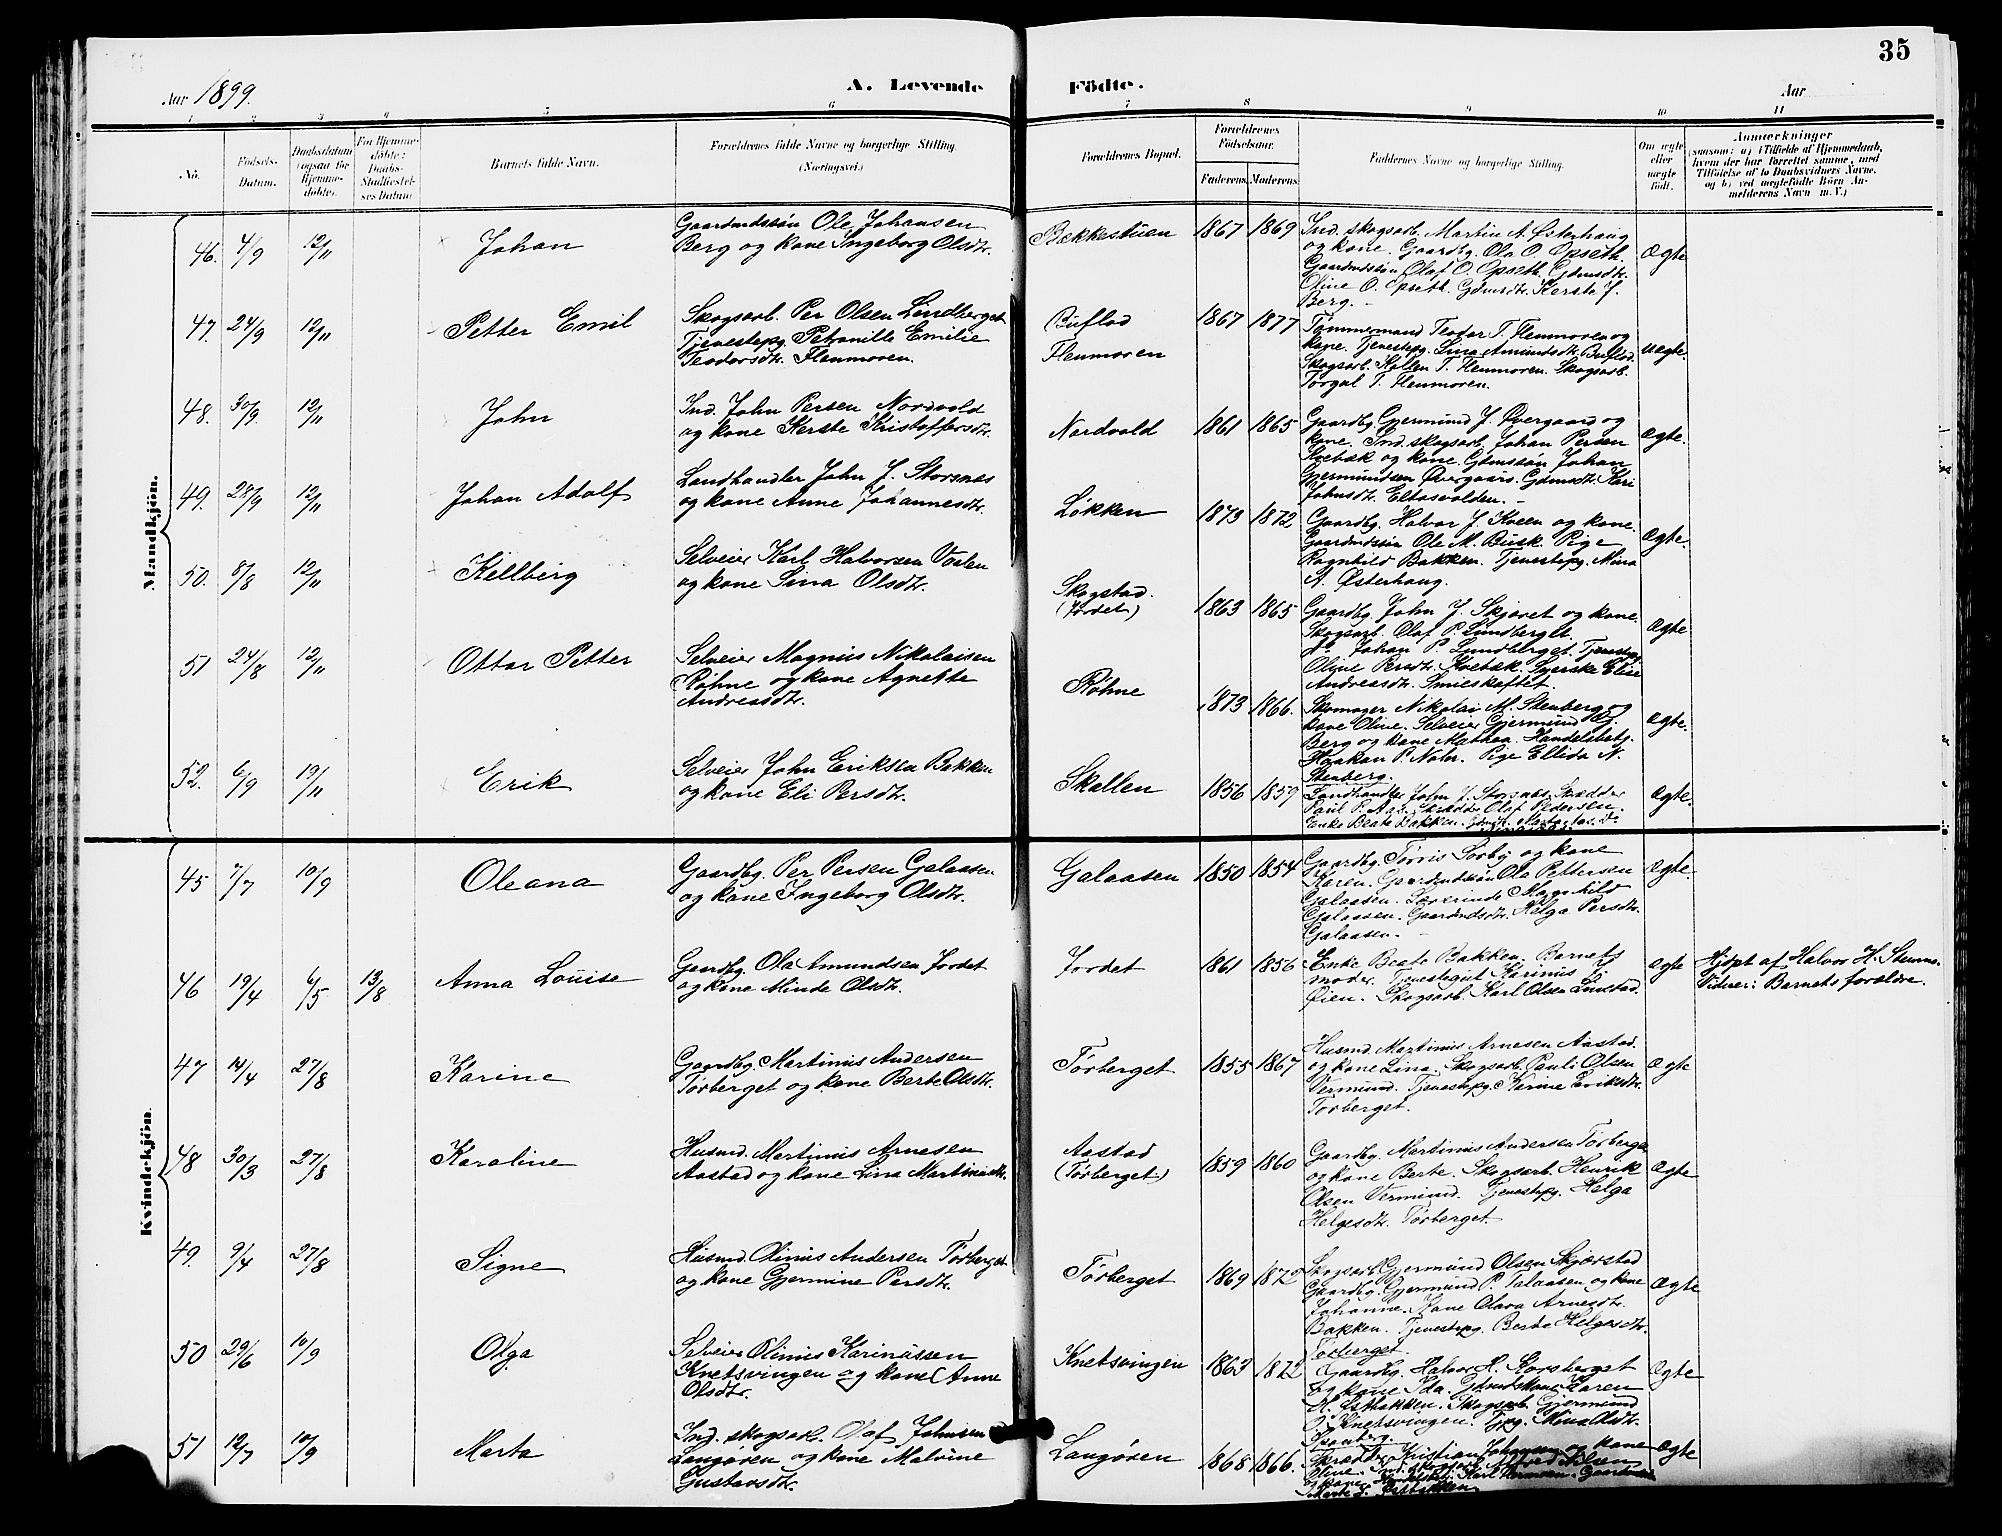 35
Aar 1899.
A. Levende Födte.
Aar
1 2 3 4 5 6 7 8 9 10 11
No.
Fødsels-Datum.
Daabsdatum (ogsaa for Hjemmedøbte).
For Hjemmedøbte: Daabs-Stadfæstelses Datum
Barnets fulde Navn.
Forældrenes fulde Navne og borgerlige Stilling. (Næringsvei.)
Forældrenes Bopæl.
Forældrenes Fødselsaar.
Faderens. Moderens.
Faddernes Navne og borgerlige Stilling.
Om ægte eller uægte født.
Anmærkninger
(saasom: a) i Tilfælde af Hjemmedaab,
hvem der har forrettet samme, med
Tilføielse af to Daabsvidners Navne.
og b) ved uægtefødte Børn An-
melderens Navn m. V.)
Mandkjön.
46. 4/9 12/11 Johan
Gaardmdssøn Ole Johansen
Berg og kone Ingeborg Olsdtr.
Bækkestuen 1867 1869
Ind. skogsarb. Martin A. Østerhaug
og kone. Gaardbg. Ola O. Opseth.
Gaardmdssøn Olaf O. Opseth. Gdmsdtr.
Oline O. Opseth. Gdmsdtr. Kersta J.
Berg.
Ægte
47. 24/9 12/11 Petter Emil
Skogsarb. Per Olsen Lindberget
Tjenestepg. Petronille Emilie
Teodorsdtr. Flenmoren.
Buflod
Flenmoren
1867 1877
Tømmermand Teodor T. Flenmoren og
kone. Tjenestepg. Lina Amundsdtr. Buflod.
Skogsarb. Kolten T. Flenmoren. Skogsarb.
Torgal T. Flenmoren.
uægte.
48. 30/9. 12/11 John
Ind. John Persen Nordvold
og kone Kerste Kristoffersdtr.
Nordvold 1861 1865
Gaardbg. Gjermund J. Øvergaard og
kone. Ind. skogsarb. Johan Persen
Kvebæk og kone. Gdmssøn Johan
Gjermundsen Øvergaard. Gdmsdtr. Kari
Johnsdtr. Eltasvolden.
ægte.
49. 28/9 12/11 Johan Adolf
Landhandler John J. Storsnæs
og kone Anne Johannesdtr.
Løkken 1873 1872
Gaardbg. Halvor J. Kveen og kone.
Gaardmdssøn Ole M. Busk. Pige
Ragnhild Bakken. Tjenestepg. Mina
A. Østerhaug.
Ægte.
50. 8/8 12/11 Kjellberg
Selveier Karl Halvorsen Voalen
og kone Lina Olsdtr.
Skogstad.
(Jordet)
1863 1865
Gaardbg. John J. Skjæret og kone.
Skogsarb. Olaf P. Lundberget.
do Johan P. Lundberget. Tjenestepg.
Oline Persdtr. Kvebæk. Syerske Elise
Andreasdtr. Smieskaftet.
Ægte
51 24/8 12/11 Ottar Petter
Selveier Magnus Nikolaisen
Røhne og kone Agnethe
Andreasdtr.
Røhne 1873 1866.
Skomager Nikolai M. Stenberg og
kone Oline. Selveier Gjermund G.
Berg og kone Mathea. Handelsbetj.
Haakan P. Nohr. Pige Ellida N.
Stenberg.
ægte.
52. 6/9 19/11 Erik
Selveier John Eriksen Bakken
og kone Eli Persdtr.
Skallen 1856 1859
Landhandler John J. Storsnæs. Skrædder
Paul P. Aas. Skrædder Olaf Pedersen.
Enke Beate Bakken.
Ægte.
Kvindekjön.
45 7/7 10/9 Oleana
Gaardbg. Per Persen Galaasen
og kone Ingeborg Olsdtr.
Galaasen 1850 1854
Gaardbg. Tørris Sorby og kone
Karen. Gaardmdssøn Ola Pettersen
Galaasen. Lærerinde Magnhild
Galaasen. Gaardmdsdtr. Helga Persdtr.
Galaasen.
Ægte.
46 19/4 6/5 13/8 Anna Louise
Gaardbg. Ola Amundsen Jordet
og kone Minda Olsdtr.
Jordet 1861 1856
Enke Beate Bakken. Barnets
moder. Tjenestegut Karinus G.
Øien. Skogsarb. Karl Olsen Linstad.
ægte
Hjdpt af Halvor H. Stenmo.
Vidner: Barnets forældre.
47 14/4 27/8 Karine
Gaardbg. Martinus Andersen
Tørberget og kone Berte Olsdtr.
Tørberget 1855 1867
Husmd. Martinus Arnesen Aastad.
og kone Lina. Skogsarb. Pauli Olsen
Vermund. Tjenestepg. Karine Eriksdtr.
Torberget.
Ægte
48 30/3 27/8 Karoline
Husmd. Martinus Arnesen
Aastad og kone Lina Martinsdtr.
Aastad
(Tørberget)
1859 1860
Gaardbg. Martinus Andersen Tørberget
og kone Berte. Skogsarb. Henrik
Olsen Vermund. Tjenestepg. Helga
Helgesdtr. Tørberget.
Ægte
49. 9/4 27/8 Signe
Husmd. Olinus Andersen Tørberget
og kone Gjermine Persdtr.
Tørberget 1869 1873
Skogsarb. Gjermund Olsen Skjærstad
Gaardbg. Gjermund P. Galaasen og kone
Johanne. Kone Olava Arnesdtr.
Bakken. Tjenestepg. Berte Helgesdtr.
Tørberget.
Ægte
50 29/6 10/9 Olga
Selveier Olinus Karinussen
Knetsvingen og kone Anne
Olsdtr.
Knetsvingen 1863 1872
Gaardbg. Halvor H. Korsberget
og kone Ida. Gdmdskone Karen
Skogsarb. Gjermund
O. Knetsvingen. Tjpg. Mina Olsdtr.
Ægte
51 12/7 10/9 Marta
Ind. skogsarb. Olaf Johnsen
Langøren og kone Malvine
Gustavsdtr.
Langøren 1868 1866.
Skrædder Kristian Johansen og kone
Oline. Ind. skogsarb.
Ægte